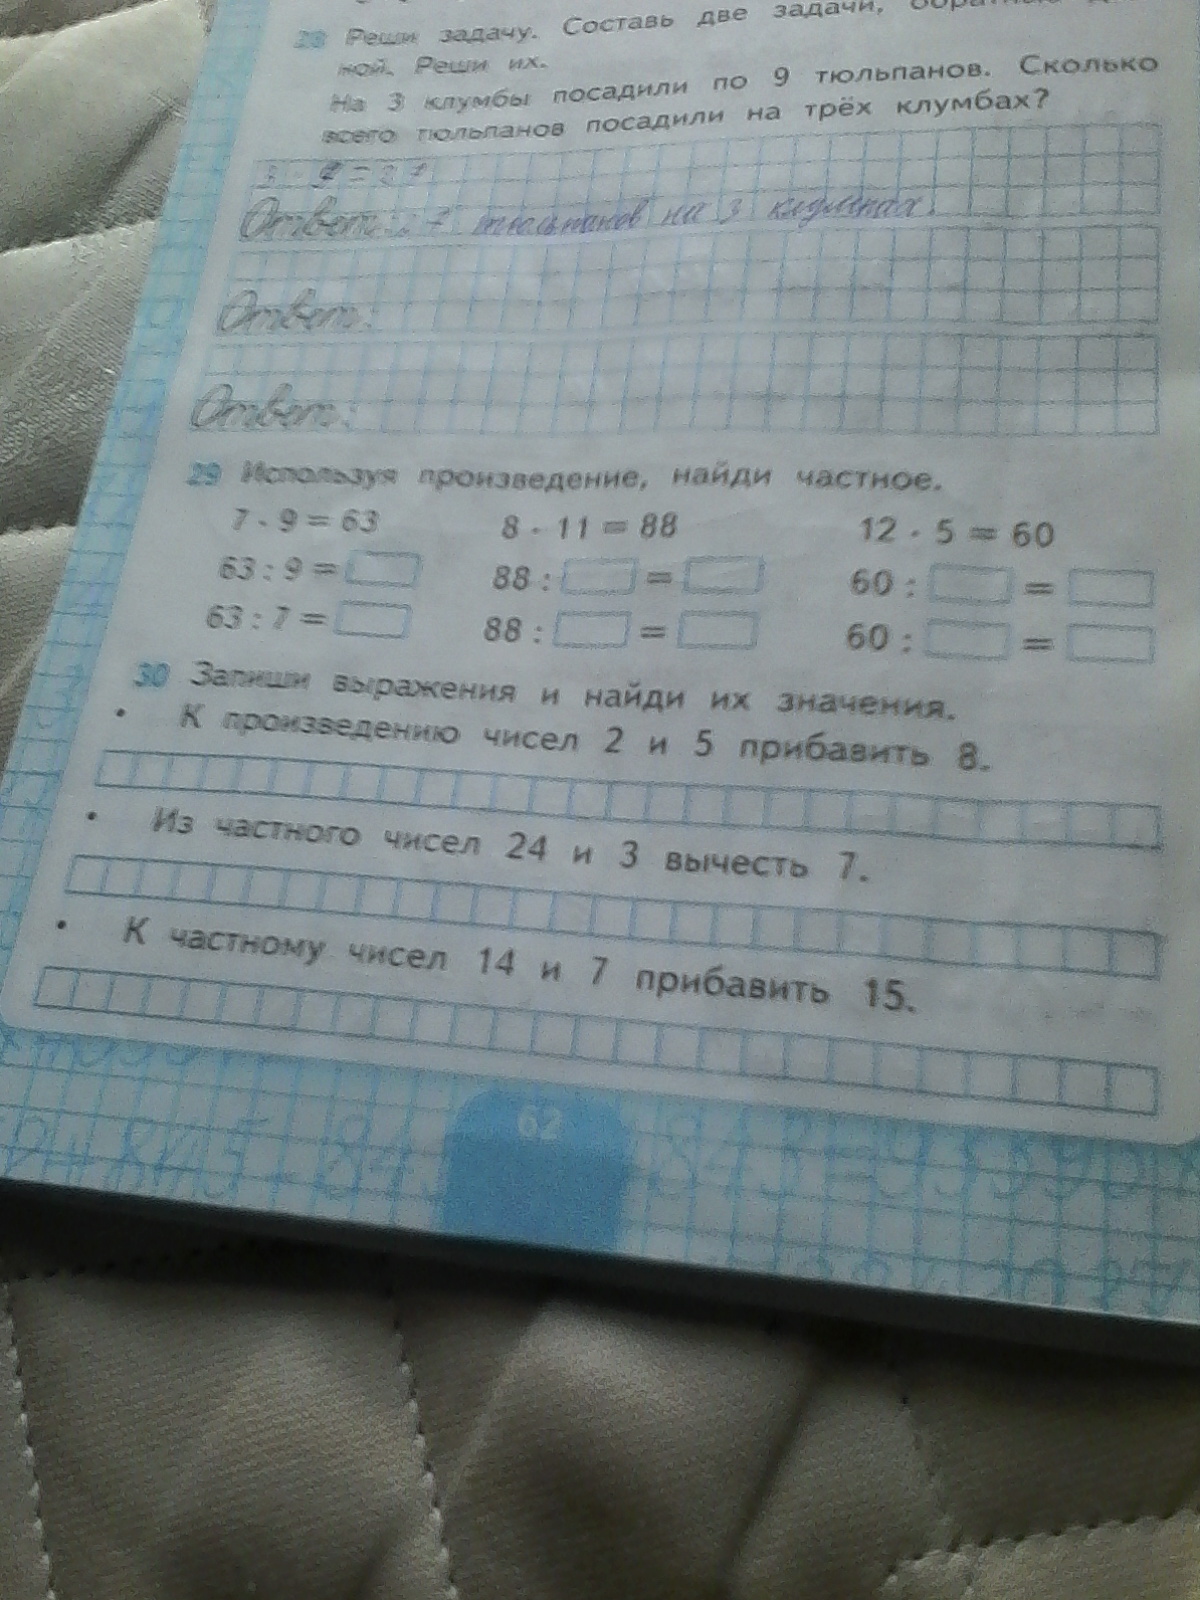 28 Реши задачу. Составь две задачи, обратные
ной. Реши их.
На 3 клумбы посадили по 9 тюльпанов. Сколько
всего тюльпанов посадили на трёх клумбах?
3 · 9 = 27
Ответ: 27 тюльпанов на 3 клумбах.
Ответ:
Ответ:
29 Используя произведение, найди частное.
7 · 9 = 63 8 · 11 = 88 12 · 5 = 60
63 : 9 = 88 : = 60 : =
63 : 7 = 88 : = 60 : =
30 Запиши выражения и найди их значения.
• К произведению чисел 2 и 5 прибавить 8.
• Из частного чисел 24 и 3 вычесть 7.
• К частному чисел 14 и 7 прибавить 15.
62